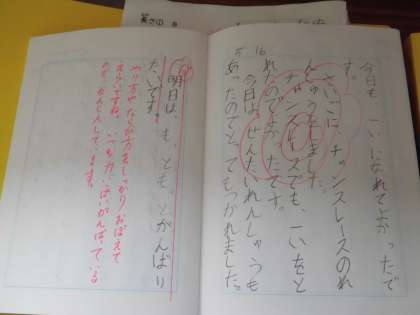 5 16
今日も、一いになれてよかったで
す。
さいごに、チャンスレースのれ
んしゅうをしました。
チャンスレースでも、一いをと
れたのでよかったです。
今日は、ぜんたいれんしゅうも
あったので、とてもつかれました。
明日は、も、ともっとがんばり
たいです。
やり方やならび方をしっかりおぼえて
えらいですね。いつも力いっぱいがんばっている
ので、かんしんしています。